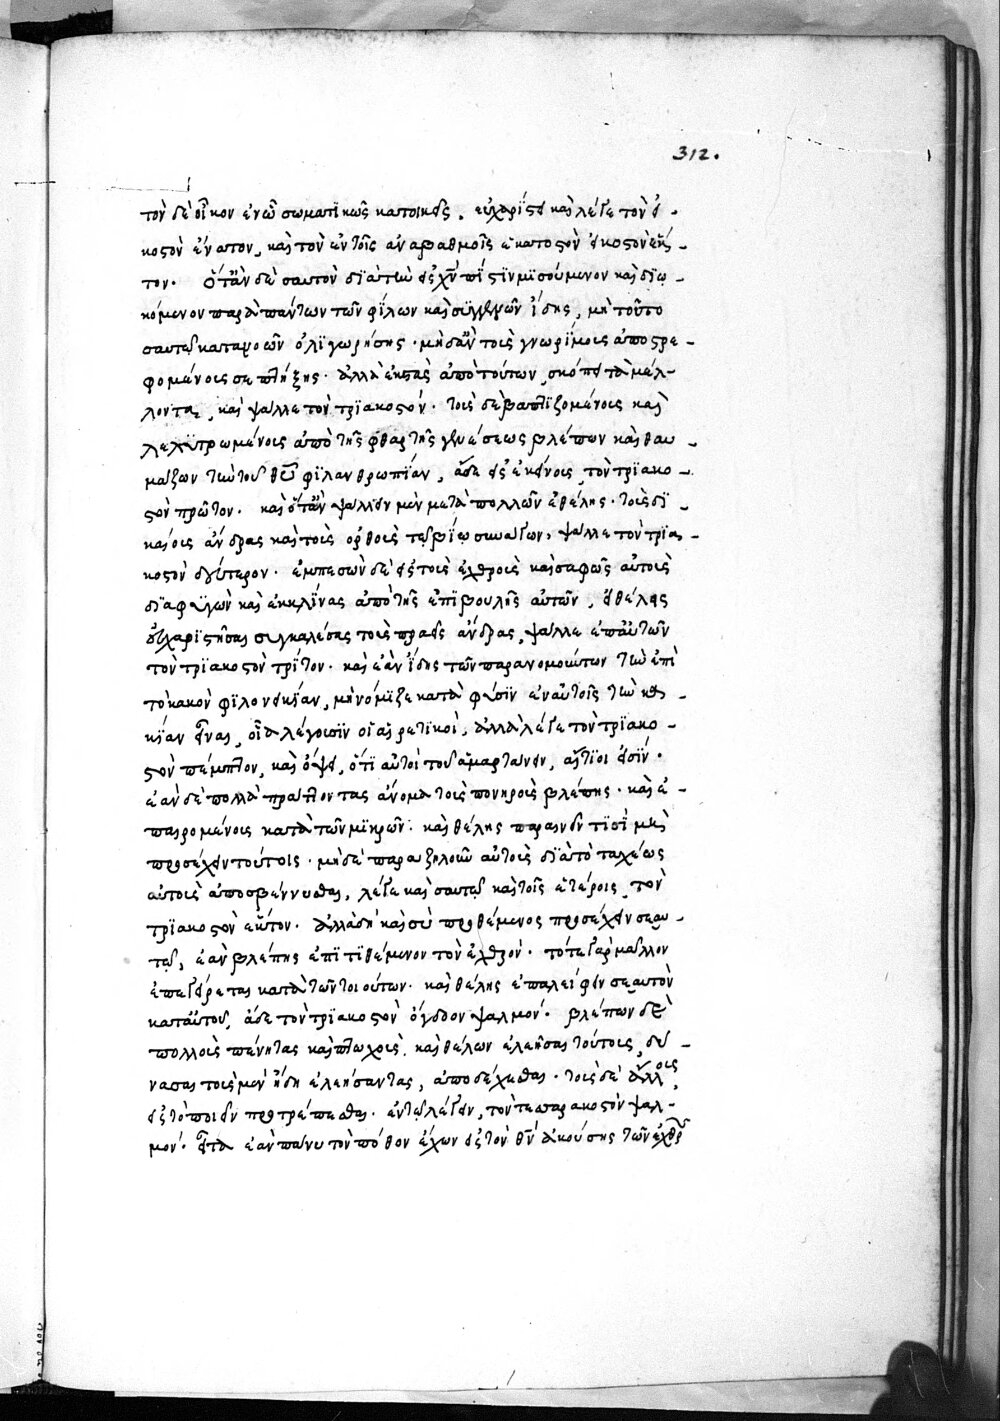 312.
τὸν δὲ οἶκον ἐν ᾧ σωματικῶς κατοικεῖς. εὐχαρίστει καὶ λέγε τὸν εἰ-
κοστὸν ἔνατον, καὶ τὸν ἐν τοῖς ἀναβαθμοῖς ἑκατοστὸν εἰκοστὸν ἕκ-
τον. ὅταν δὲ σαυτὸν διὰ τὴν εἰς χν πίστιν μισούμενον καὶ διω-
κόμενον παρὰ πάντων τῶν φίλων καὶ συγγενῶν ἴδης, μὴ τοῦτο
σαυτῷ κατανοῶν ὀλιγωρήσης. μηδ' ἂν τοῖς γνωρίμοις ἀποστρε-
φομένοις σε πλήξης. ἀλλὰ ἐκστὰς ἀπὸ τούτων, σκόπει τὰ μέλ-
λοντα, καὶ ψάλλε τὸν τριακοστόν. τοὺς δὲ βαπτιζομένους καὶ
λελυτρωμένους ἀπὸ τῆς φθαρτῆς γενέσεως βλέπων καὶ θαυ-
μάζων τὴν τοῦ θυ φιλανθρωπίαν, ἆδε εἰς ἐκείνους τὸν τριακο-
στὸν πρῶτον. καὶ ὅταν ψάλλειν μὲν μετὰ πολλῶν ἐθέλης. τοὺς δι-
καίους ἄνδρας καὶ τοὺς ὀρθοὺς τῷ βίῳ συνάγων, ψάλλε τὸν τρια-
κοστὸν δεύτερον. ἐμπεσὼν δὲ εἰς τοὺς ἐχθροὺς καὶ σαφῶς αὐτοὺς
διαφυγὼν καὶ ἐκκλίνας ἀπὸ τῆς ἐπιβουλῆς αὐτῶν, εἰ θέλεις
εὐχαριστῆσαι συγκαλέσας τοὺς πραεῖς ἄνδρας, ψάλλε ἐπ' αὐτῶν
τὸν τριακοστὸν τρίτον. καὶ ἐὰν ἴδης τῶν παρανομούντων τὴν ἐπὶ
τὸ κακὸν φιλονεικίαν, μὴ νόμιζε κατὰ φύσιν ἐν αὐτοῖς τὴν κα-
κίαν εἶναι, οἷα λέγουσιν οἱ αἱρετικοί, ἀλλὰ λέγε τὸν τριακο-
στὸν πέμπτον, καὶ ὄψει, ὅτι αὐτοὶ τοῦ ἁμαρτάνειν, αἴτιοι εἰσίν.
ἐὰν δὲ πολλὰ πράττοντας ἄνομα τοὺς πονηροὺς βλέπης. καὶ ἐ-
παιρομένους κατὰ τῶν μικρῶν. καὶ θέλης παραινεῖν τισὶ μὴ
προσέχειν τούτοις. μηδὲ παραζηλοῦν αὐτοὺς διὰ τὸ ταχέως
αὐτοὺς ἀποσβέννυσθαι, λέγε καὶ σαυτῷ καὶ τοῖς ἑτέροις, τὸν
τριακοστὸν ἕκτον. ἀλλὰ δὴ καὶ σὺ προθέμενος προσέχειν σεαυ-
τῷ, ἐὰν βλέπης ἐπιτιθέμενον τὸν ἐχθρόν. τότε γὰρ μᾶλλον
ἐπεγείρεται κατὰ τῶν τοιούτων. καὶ θέλης ἐπαλείφειν σεαυτὸν
κατ' αὐτοῦ, ἆδε τὸν τριακοστὸν ὄγδοον ψαλμόν. βλέπων δὲ
πολλοὺς πένητας καὶ πτωχούς, καὶ θέλων ἐλεῆσαι τούτους, δύ-
νασαι τοὺς μὲν ἤδη ἐλεήσαντας, ἀποδέχεσθαι. τοὺς δὲ ἄλλους,
εἰς τὸ ποιεῖν προτρέπεσθαι. ἐν τῷ λέγειν, τὸν τεσσαρακοστὸν ψαλ-
μόν. εἶτα ἐὰν πάνυ τὸν πόθον ἔχων εἰς τὸν θν ἀκούσης τῶν ἐχθρῶν